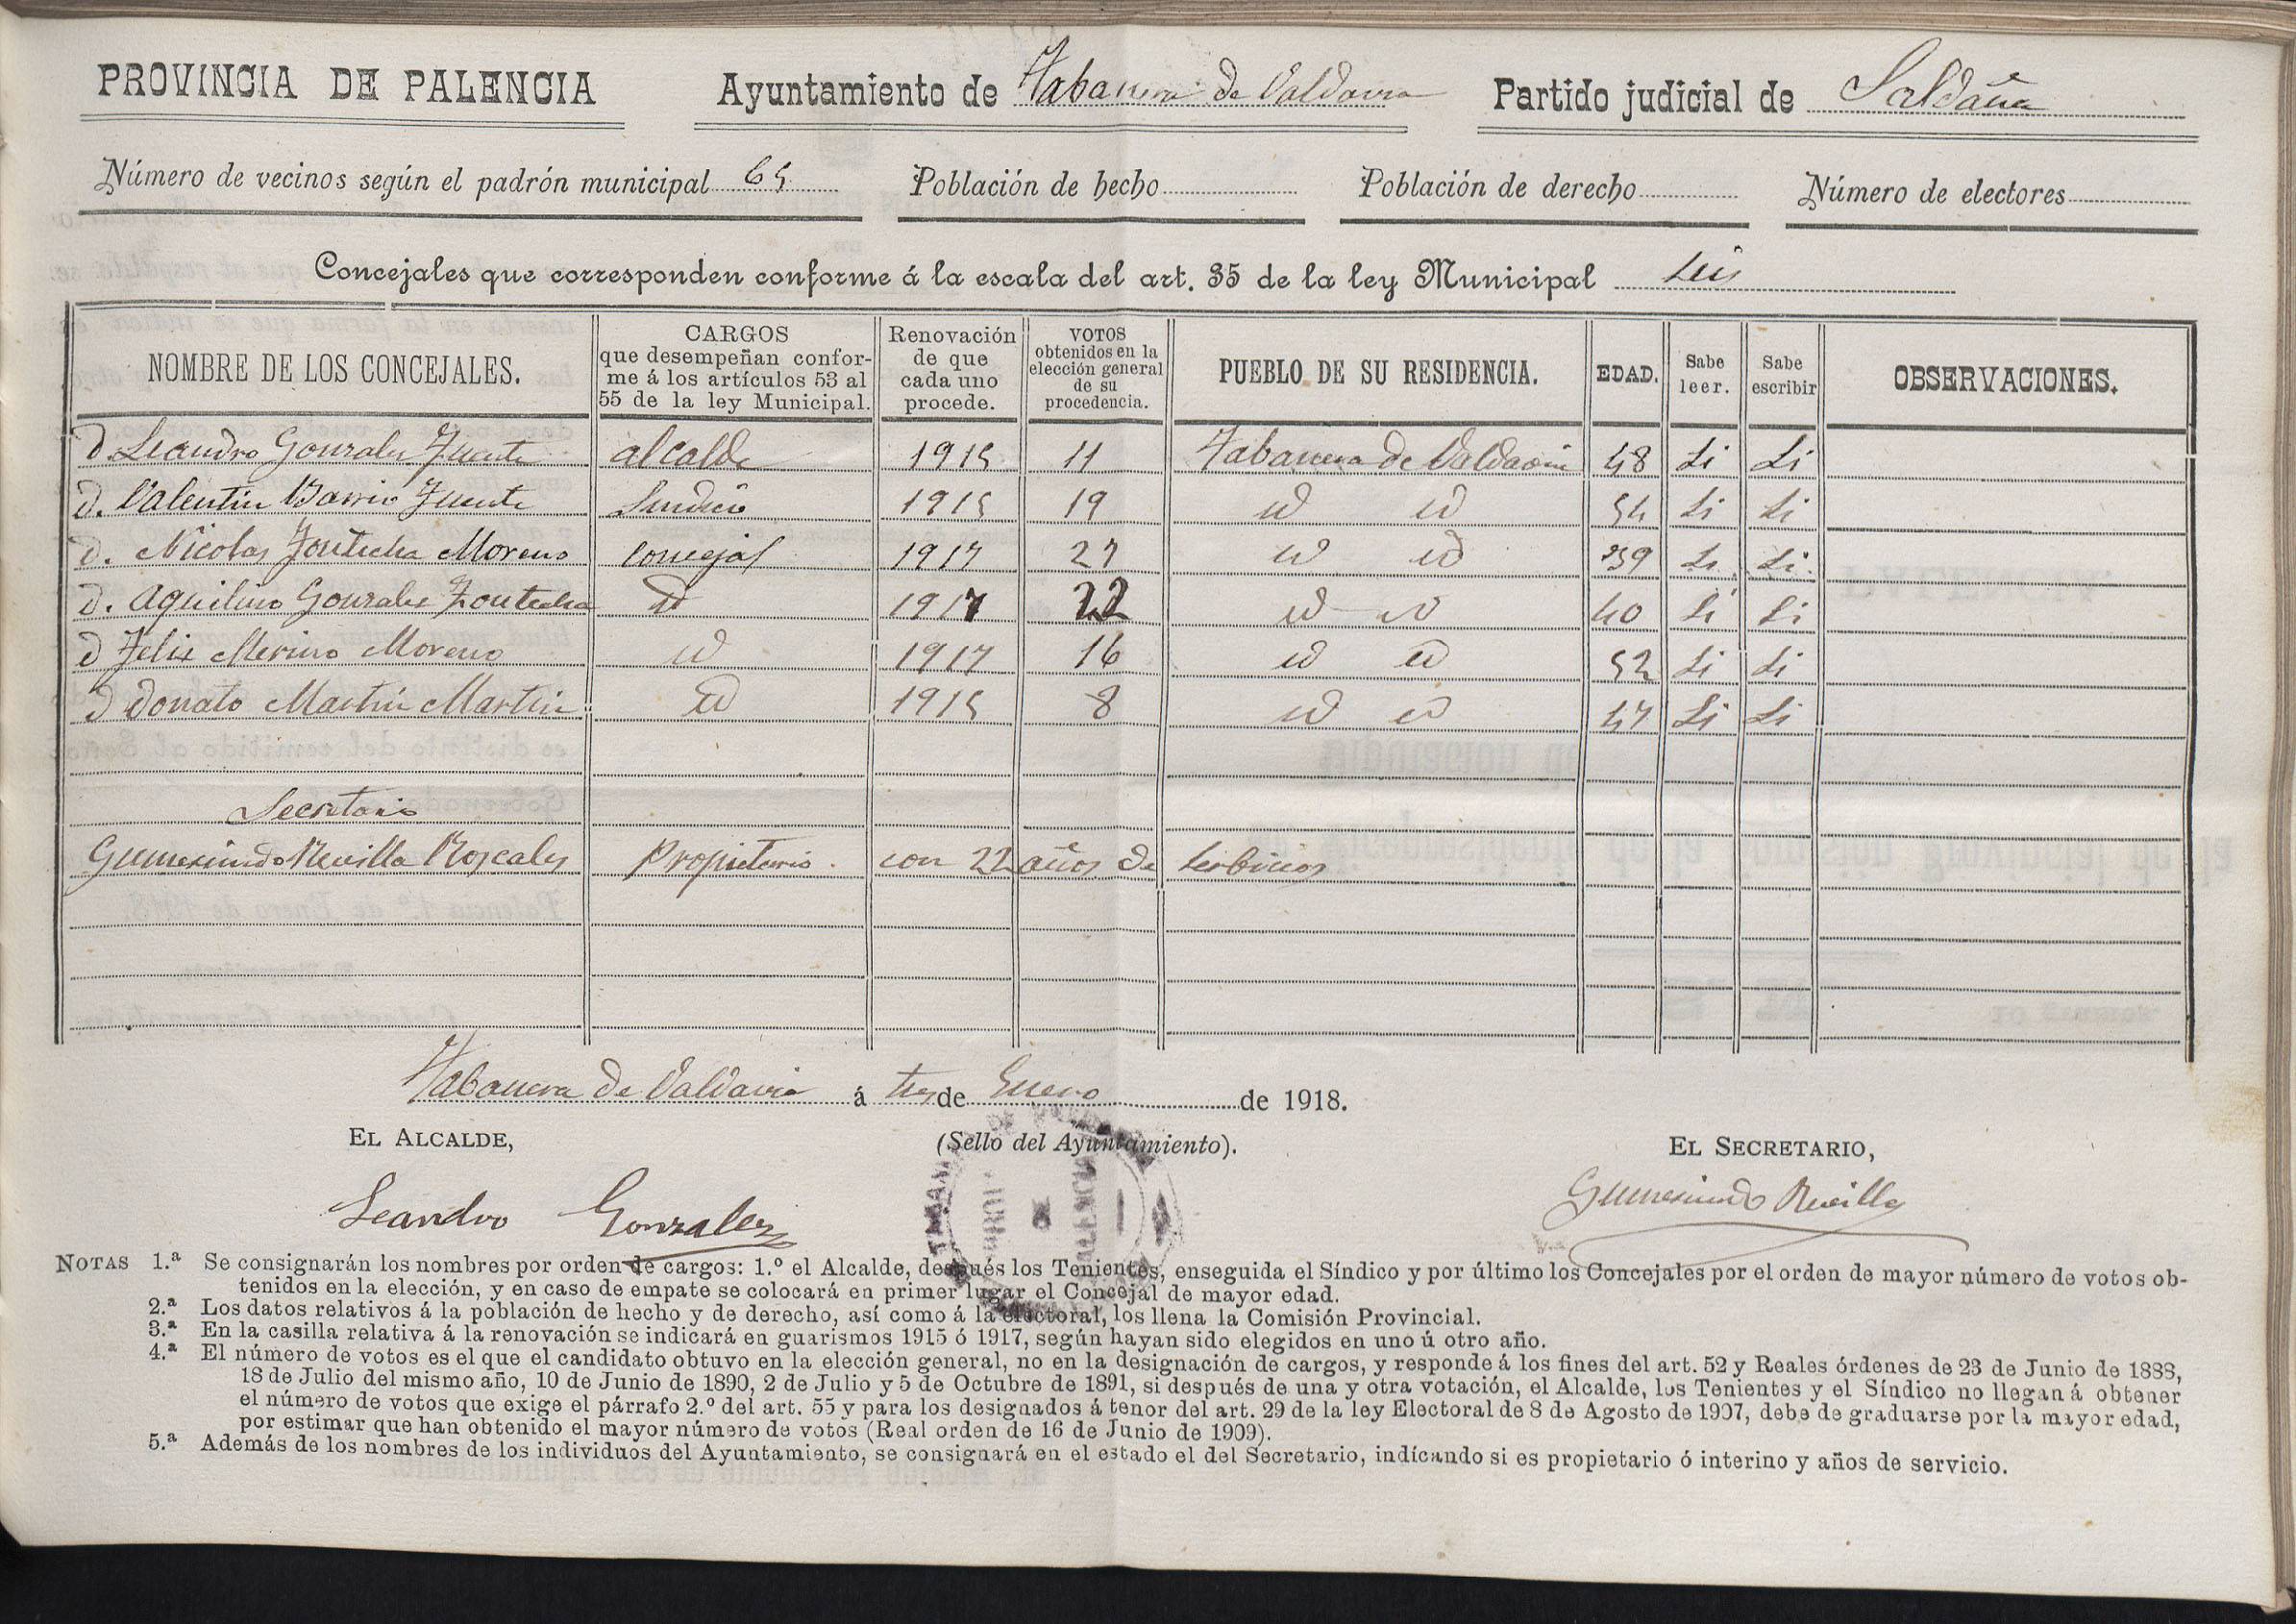 PROVINCIA DE PALENCIA Ayuntamiento de Tabanera de Valdavia Partido judicial de Saldaña
Número de vecinos según el padrón municipal 65 Población de hecho Población de derecho Número de electores
Concejales que corresponden conforme á la escala del art. 35 de la ley Municipal Seis
NOMBRE DE LOS CONCEJALES. CARGOS que desempeñan conforme á los artículos 53 al 55 de la ley Municipal. Renovación de que cada uno procede. VOTOS obtenidos en la elección general de su procedencia. PUEBLO DE SU RESIDENCIA. EDAD. Sabe leer. Sabe escribir OBSERVACIONES.
D. Leandro Gonzalez Fuente alcalde 1915 11 Tabanera de Valdavia 48 Si Si
D. Valentin Barrio Fuente Sindico 1915 19 id id 54 Si Si
D. Nicolas Fontecha Moreno concejal 1917 27 id id 39 Si Si
D. Aquilino Gonzalez Fontecha id 1917 22 id id 40 Si Si
D Felix Merino Moreno id 1917 16 id id 52 Si Si
D Donato Martin Martin id 1915 8 id id 47 Si Si
Secretario
Gumersindo Revilla Roscales Propietario. con 22 años de serbicios
Tabanera de Valdavia á tres de Enero de 1918.
EL ALCALDE, (Sello del Ayuntamiento). EL SECRETARIO,
Leandro Gonzalez Gumersindo Revilla
NOTAS 1.ª Se consignarán los nombres por orden de cargos: 1.º el Alcalde, después los Tenientes, enseguida el Síndico y por último los Concejales por el orden de mayor número de votos ob-
tenidos en la elección, y en caso de empate se colocará en primer lugar el Concejal de mayor edad.
2.ª Los datos relativos á la población de hecho y de derecho, así como á la electoral, los llena la Comisión Provincial.
3.ª En la casilla relativa á la renovación se indicará en guarismos 1915 ó 1917, según hayan sido elegidos en uno ú otro año.
4.ª El número de votos es el que el candidato obtuvo en la elección general, no en la designación de cargos, y responde á los fines del art. 52 y Reales órdenes de 23 de Junio de 1888,
18 de Julio del mismo año, 10 de Junio de 1890, 2 de Julio y 5 de Octubre de 1891, si después de una y otra votación, el Alcalde, los Tenientes y el Síndico no llegan á obtener
el número de votos que exige el párrafo 2.º del art. 55 y para los designados á tenor del art. 29 de la ley Electoral de 8 de Agosto de 1907, debe de graduarse por la mayor edad,
por estimar que han obtenido el mayor número de votos (Real orden de 16 de Junio de 1909).
5.ª Además de los nombres de los individuos del Ayuntamiento, se consignará en el estado el del Secretario, indicando si es propietario ó interino y años de servicio.